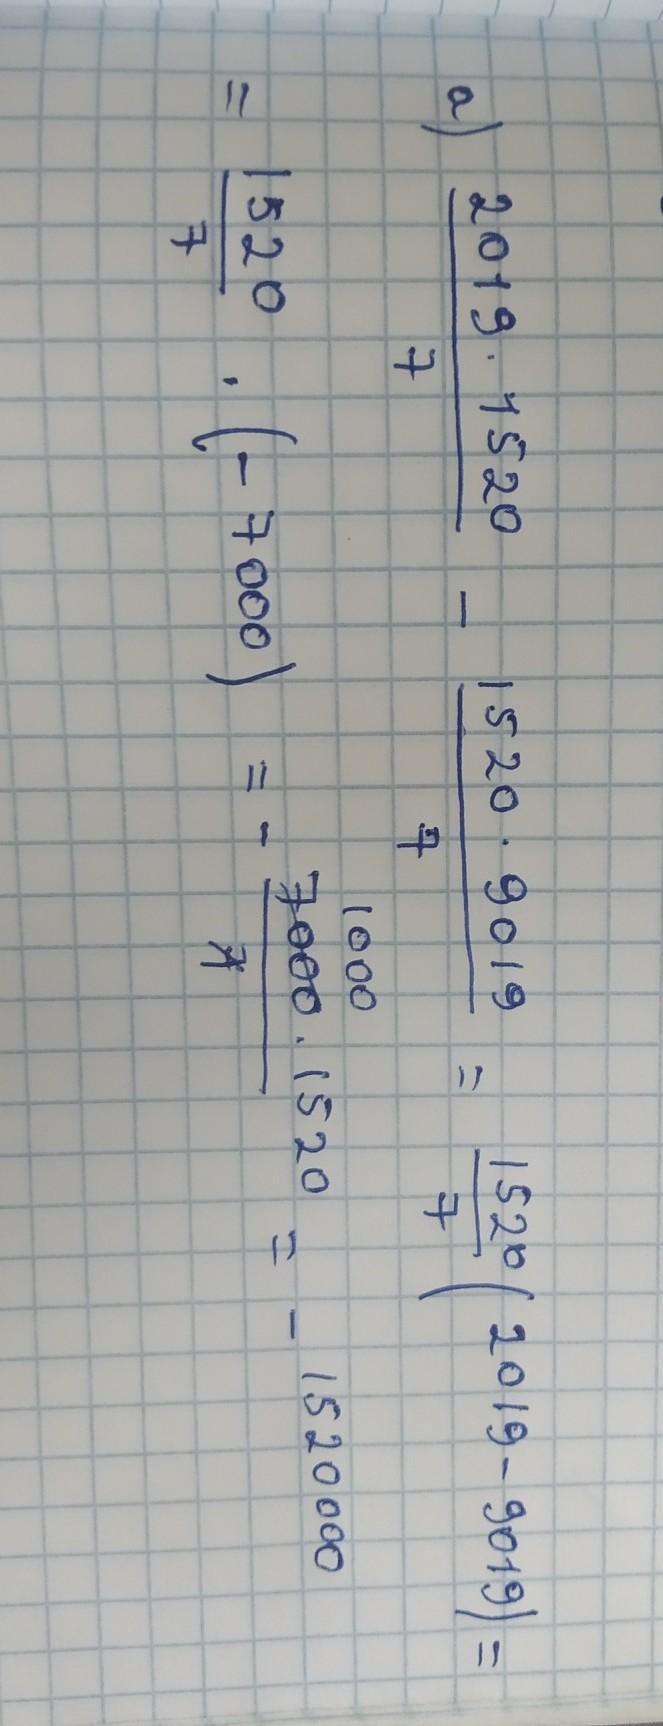 a) 2019 · 1520 / 7 - 1520 · 9019 / 7 = 1520 / 7 (2019 - 9019) =
= 1520 / 7 · (-7000) = - 7000 · 1520 / 7 = - 1520000
1000